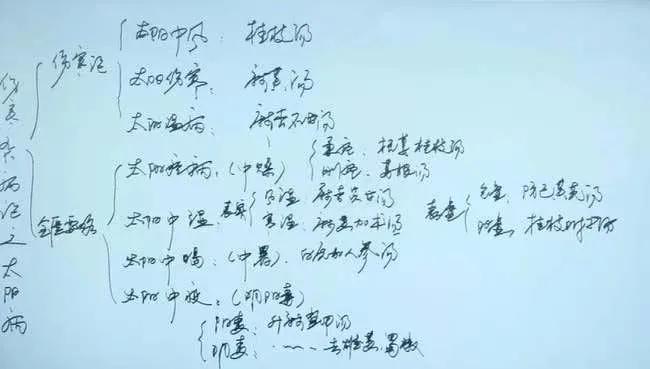 伤寒杂病论之太阳病
伤寒论
太阳中风：桂枝汤
太阳伤寒：麻黄汤
太阳温病：麻杏石甘汤
金匮要略
太阳痉病：（中燥）
柔痉：栝蒌桂枝汤
刚痉：葛根汤
太阳中湿：表实
风湿：麻杏苡甘汤
寒湿：麻黄加术汤
表虚
气虚：防己黄芪汤
阳虚：桂枝附子汤
太阳中暍：（中暑）．白虎加人参汤
太阳中疫：（阴阳毒）
阳毒：升麻鳖甲汤
阴毒：……去雄黄、蜀椒